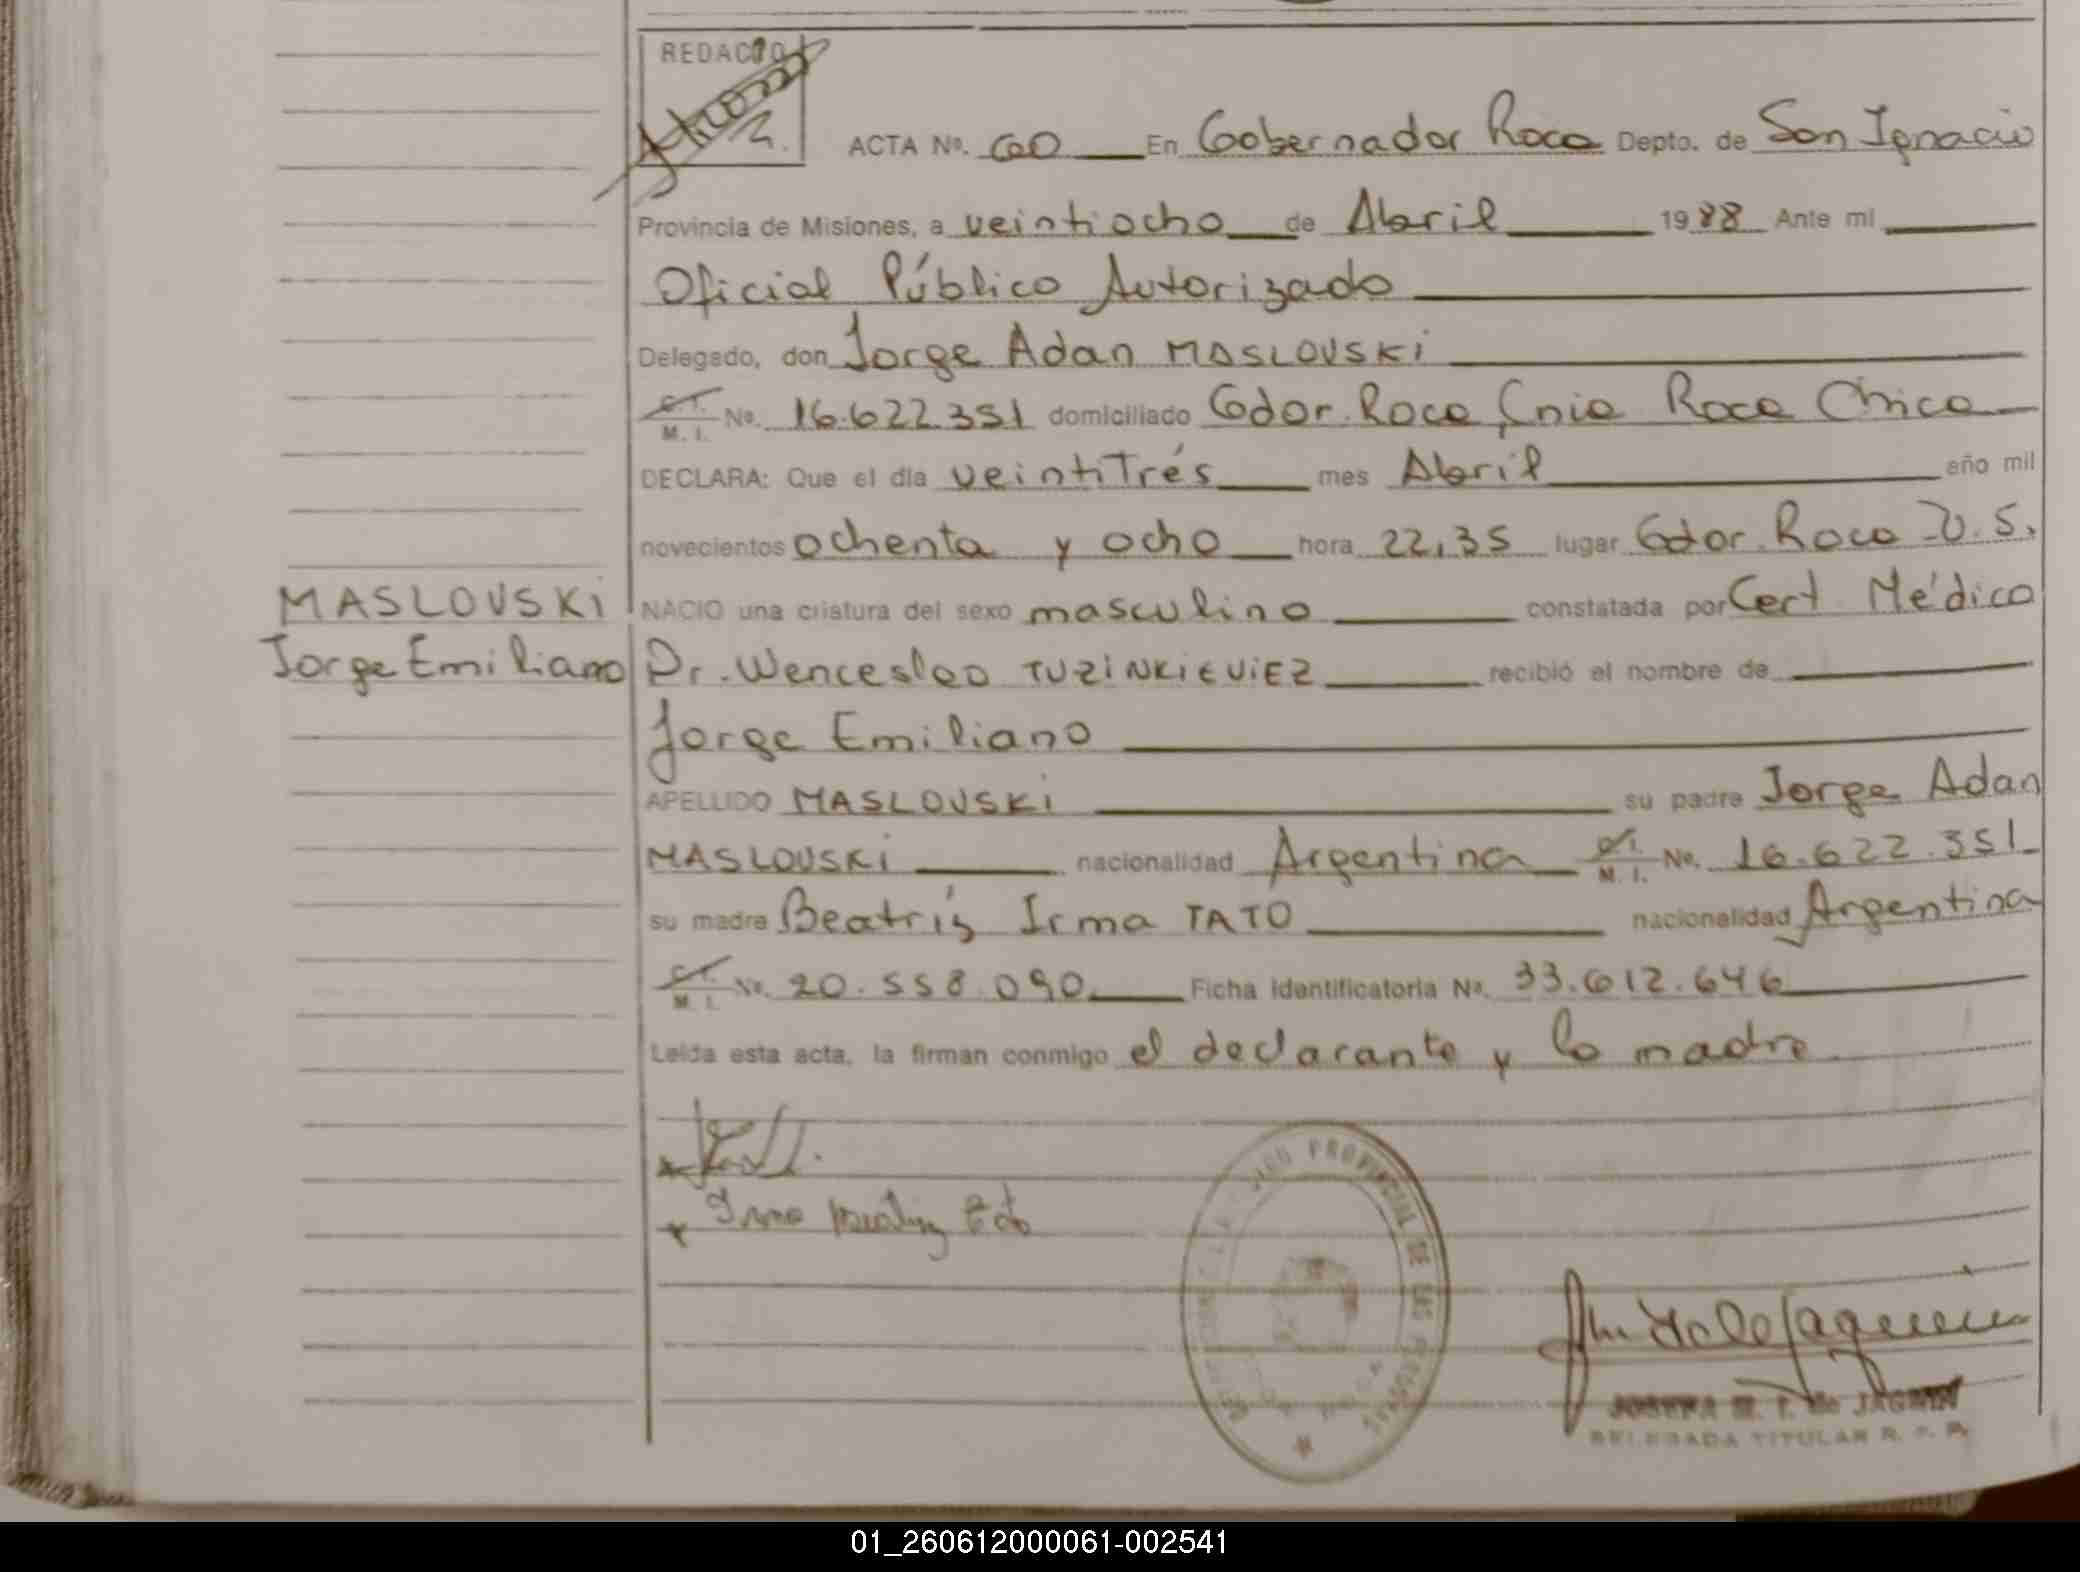 REDACTO
ACTA Nº. 60 En Gobernador Roca Depto. de San Ignacio
Provincia de Misiones, a veintiocho de Abril 1988 Ante mi
Oficial Público Autorizado
Delegado, don Jorge Adan MASLOVSKi
C.I. M.I. No. 16.622.351 domiciliado Gdor. Roca, Cnia Roca Chica
DECLARA: Que el dia veintiTrés mes Abril año mil
novecientos ochenta y ocho hora 22,35 lugar Gdor. Roca U.S.
MASLOVSKi NACIO una criatura del sexo masculino constatada por Cert Médico
Jorge Emiliano Dr. Wenceslao TUZiNKiEViEZ recibió el nombre de
Jorge Emiliano
APELLIDO MASLOVSKi su padre Jorge Adan
MASLOVSKi nacionalidad Argentina C.I. M.I. No. 16.622.351
su madre Beatrís Irma TATO nacionalidad Argentina
C.I. M.I. No. 20.558.090 Ficha Identificatoria Nº. 33.612.646
Leida esta acta, la firman conmigo el declarante y la madre
PROVINCIAL DE LAS PERSONAS
JOSEFA M. T. de JAGMIN
DELEGADA TITULAR R. P. P.
01_260612000061-002541